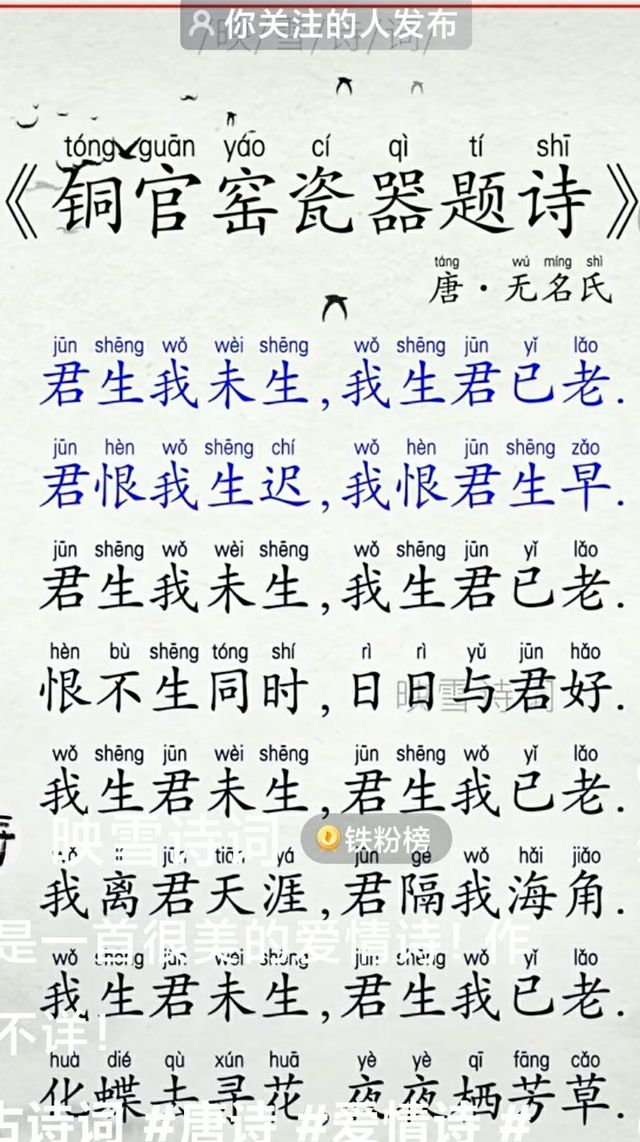 你关注的人发布
/映/雪/诗/词/
tóng guān yáo cí qì tí shī
《铜官窑瓷器题诗》
táng wú míng shì
唐·无名氏
jūn shēng wǒ wèi shēng wǒ shēng jūn yǐ lǎo
君生我未生,我生君已老.
jūn hèn wǒ shēng chí wǒ hèn jūn shēng zǎo
君恨我生迟,我恨君生早.
jūn shēng wǒ wèi shēng wǒ shēng jūn yǐ lǎo
君生我未生,我生君已老.
hèn bù shēng tóng shí rì rì yǔ jūn hǎo
恨不生同时,日日与君好.
映雪诗词
wǒ shēng jūn wèi shēng jūn shēng wǒ yǐ lǎo
我生君未生,君生我已老.
映雪诗词 铁粉榜
wǒ lí jūn tiān yá jūn gé wǒ hǎi jiǎo
我离君天涯,君隔我海角.
是一首很美的爱情诗!作
wǒ shēng jūn wèi shēng jūn shēng wǒ yǐ lǎo
我生君未生,君生我已老.
不详!
huà dié qù xún huā yè yè qī fāng cǎo
化蝶去寻花,夜夜栖芳草.
古诗词 #唐诗 #爱情诗 #